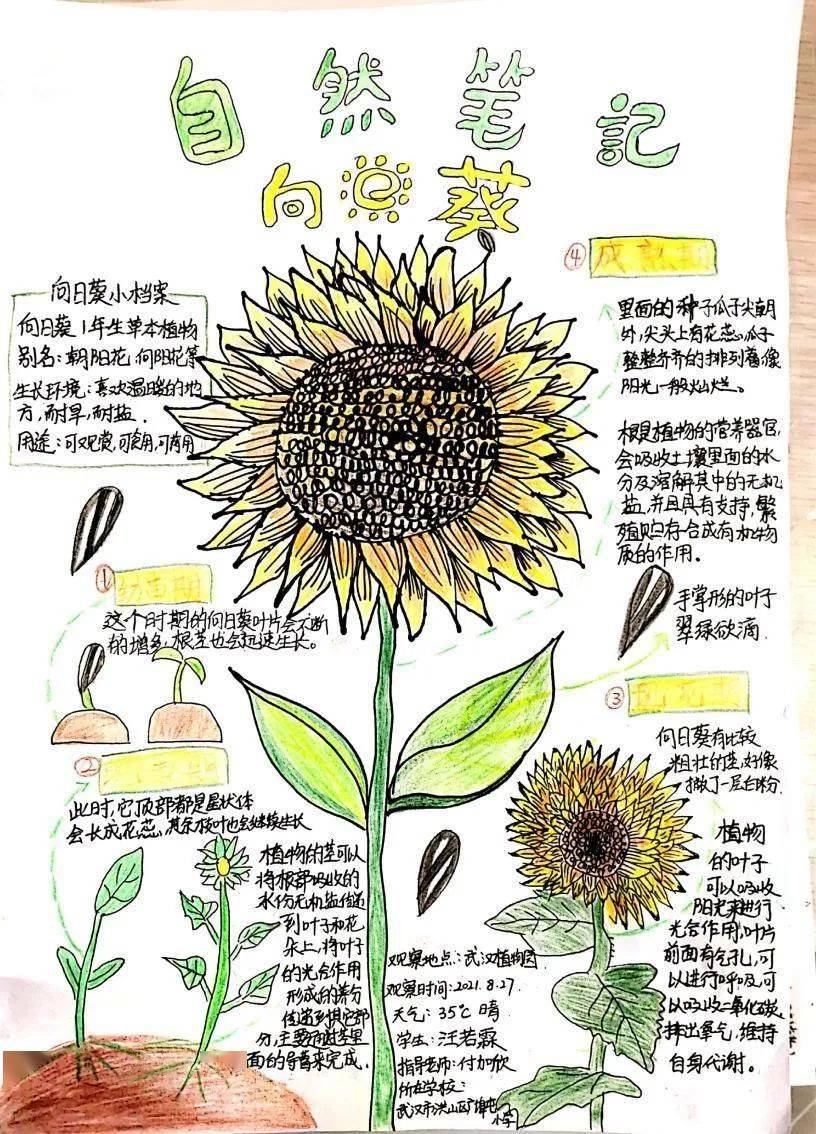 自然笔記
向日葵
向日葵小档案
向日葵 1年生草本植物
别名:朝阳花,向阳花等
生长环境:喜欢温暖的地
方,耐旱,耐盐.
用途:可观赏,可食用,可药用
①幼苗期
这个时期的向日葵叶片会不断
的增多,根茎也会迅速生长。
②
此时,它顶部都是星状体
会长成花蕊,其余枝叶也会继续生长
植物的茎可以
将根部吸收的
水份无机盐传递
到叶子和花
朵上,将叶子
的光合作用
形成的养分
传递到其它部
分,主要
面的导管来完成.
观察地点:武汉植物园
观察时间:2021.8.27.
天气:35℃ 晴
学生:汪若霖
指导老师:付加欣
所在学校:
武汉市洪山区
小学
④成熟期
里面的种子瓜子尖朝
外,尖头上有花蕊,瓜子
整整齐齐的排列着像
阳光一般灿烂。
根是植物的营养器官,
会吸收土壤里面的水
分及溶解其中的无机
盐,并且具有支持,繁
殖贮存合成有机物
质的作用.
手掌形的叶子
翠绿欲滴.
③开花期
向日葵有比较
粗壮的茎,好像
撒了一层白粉.
植物
的叶子
可以吸收
阳光来进行
光合作用,叶片
前面有气孔,可
以进行呼吸,可
以吸收二氧化碳,
排出氧气,维持
自身代谢。